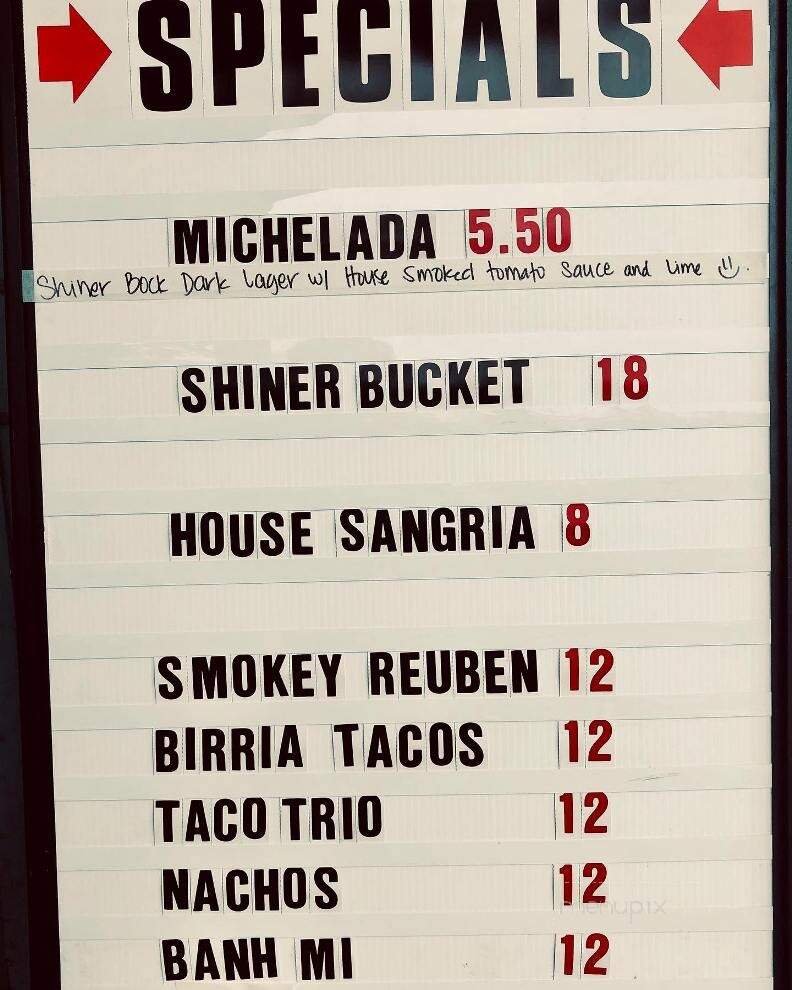 SPECIALS
MICHELADA 5.50
Shiner Bock Dark Lager w/ House Smoked tomato Sauce and Lime
SHINER BUCKET 18
HOUSE SANGRIA 8
SMOKEY REUBEN 12
BIRRIA TACOS 12
TACO TRIO 12
NACHOS 12
menupix
BANH MI 12